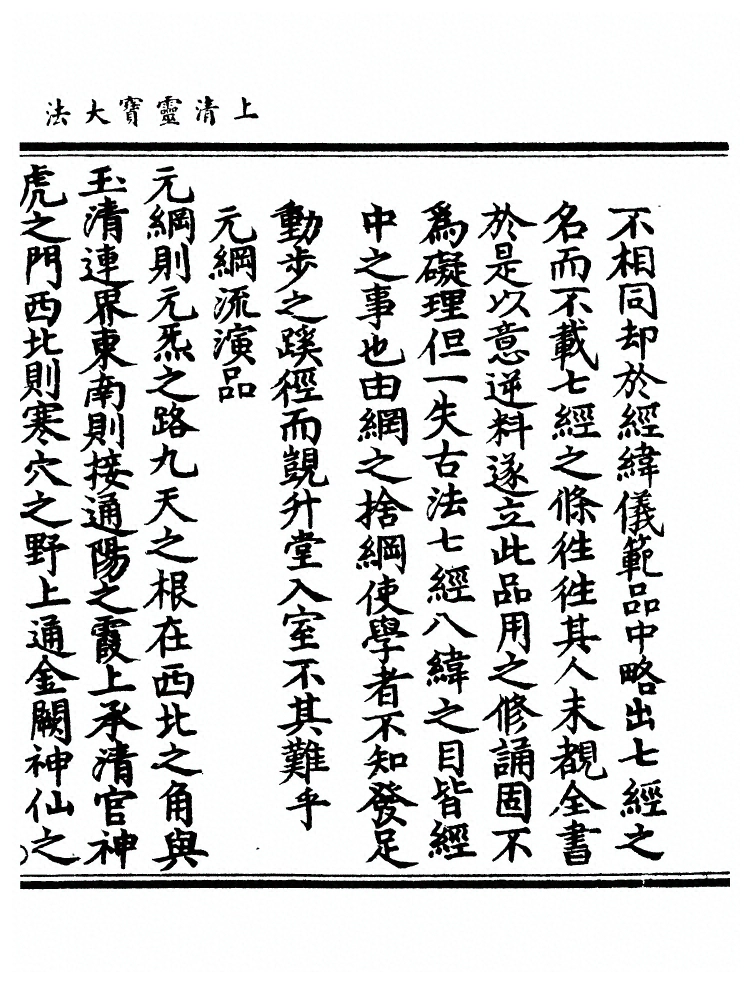 上清靈寶大法
不相同却於經緯儀範品中略出七經之
名而不載七經之條徃徃其人未覩全書
於是以意逆料遂立此品用之修誦固不
爲礙理但一失古法七經八緯之目皆經
中之事也由網之捨綱使學者不知發足
動步之蹊徑而覬升堂入室不其難乎
元綱流演品
元綱則元炁之路九天之根在西北之角與
玉清連界東南則接通陽之霞上承清官神
虎之門西北則寒穴之野上通金闕神仙之